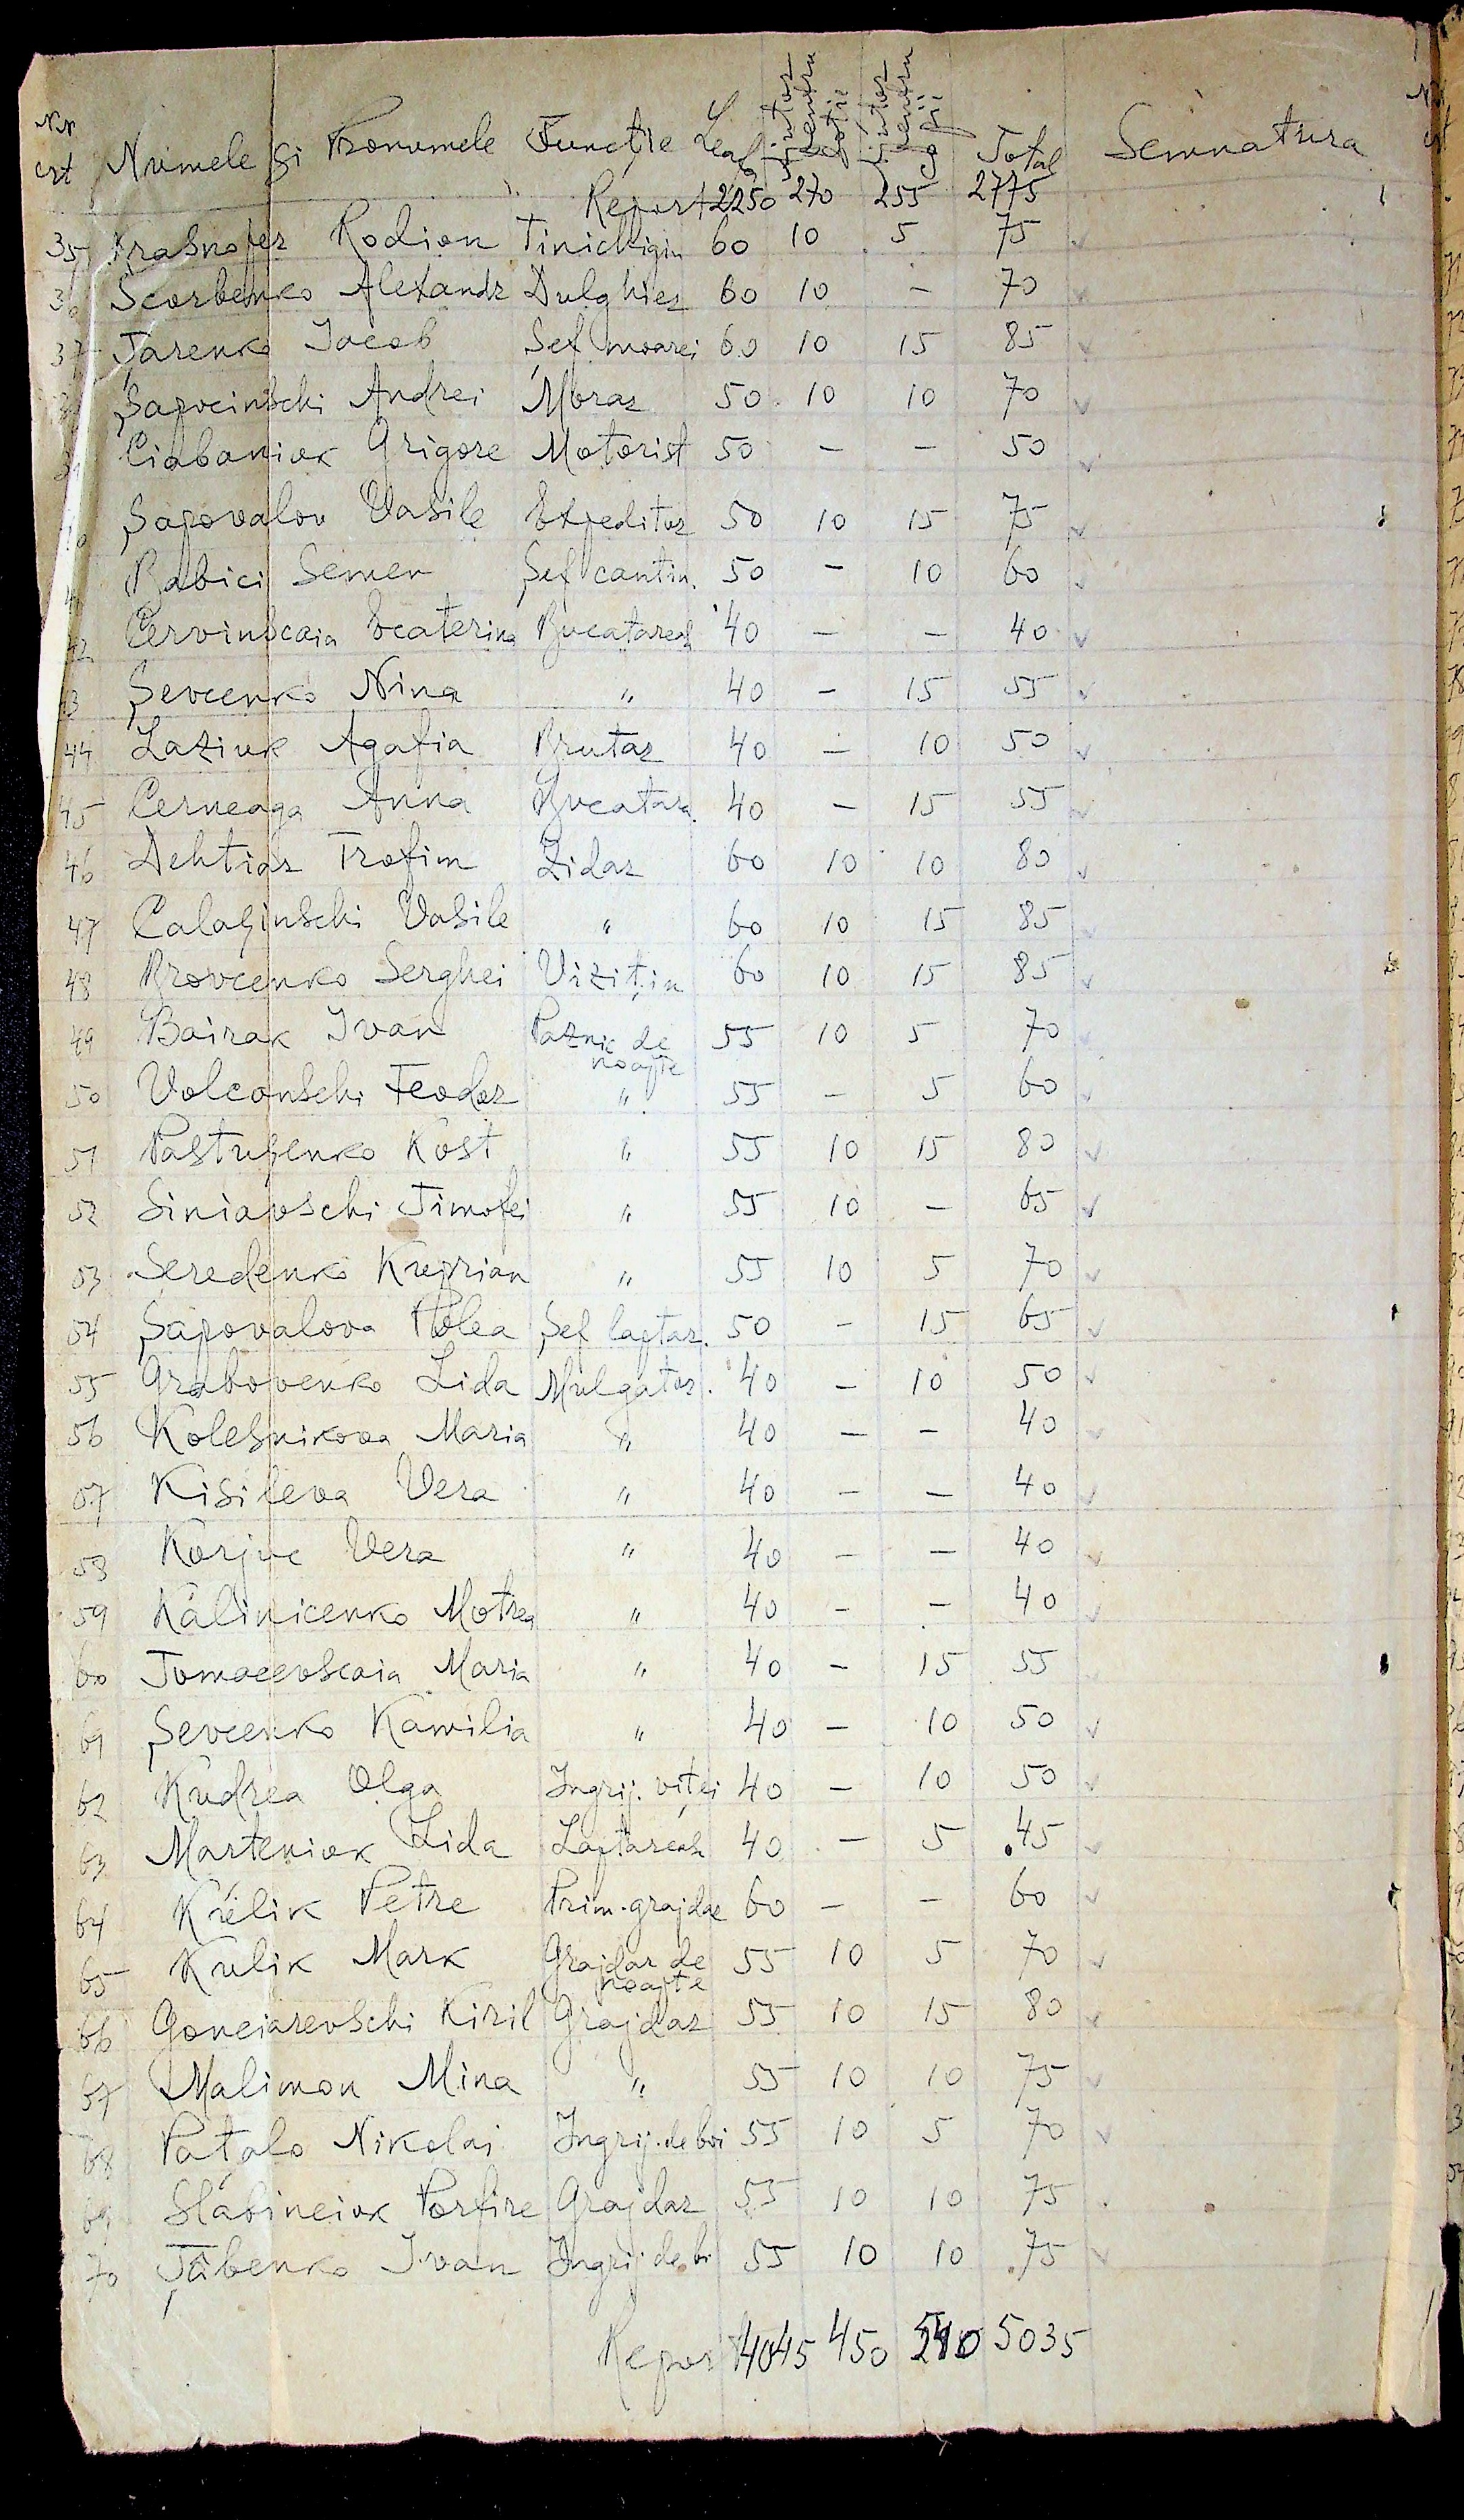 Nr crt Numele și Pronumele Functie Leafa Ajutor pentru soție Ajutor pentru copii Total Semnatura
Report 2250 270 255 2775
35 Krasnojer Rodion Tinichigiu 60 10 5 75 v
36 Scorbenko Alexandr Dulgher 60 10 - 70 v
37 Țarenko Iacob Șef moarei 60 10 15 85 v
Șapocinschi Andrei Moraz 50 10 10 70 v
Ciabaniuk Grigore Motorist 50 - - 50 v
Șapovalov Vasile Expeditor 50 10 15 75 v
Babici Semen Șef cantin. 50 - 10 60 v
42 Cervinscaia Ecaterina Bucatareasă 40 - - 40 v
43 Șevcenko Nina " 40 - 15 55 v
44 Laziuk Agafia Brutar 40 - 10 50 v
45 Cerneaga Anna Bucatara. 40 - 15 55 v
46 Dehtiar Trofim Zidar 60 10 10 80 v
47 Calașinschi Vasile " 60 10 15 85 v
48 Brovcenko Serghei Vizitiu 60 10 15 85 v
49 Bairak Ivan Paznic de noapte 55 10 5 70 v
50 Volconschi Feodor " 55 - 5 60 v
51 Pastușenko Kost " 55 10 15 80 v
52 Siniavschi Timofei " 55 10 - 65 v
53 Seredenko Kuprian " 55 10 5 70 v
54 Șapovalova Polea Șef laptar. 50 - 15 65 v
55 Grabovenko Lida Mulgator. 40 - 10 50 v
56 Kolesnikova Maria " 40 - - 40 v
57 Kisileva Vera " 40 - - 40 v
58 Korjuc Vera " 40 - - 40 v
59 Kalinicenko Motrea " 40 - - 40 v
60 Tomacevscaia Maria " 40 - 15 55
61 Șevcenko Kamilia " 40 - 10 50 v
62 Kudrea Olga Ingrij. viței 40 - 10 50 v
63 Marteniuk Lida Laptareasă 40 - 5 45 v
64 Kulik Petre Prim-grajdar 60 - - 60 v
65 Kulik Mark Grajdar de noapte 55 10 5 70 v
66 Gonciarevschi Kiril Grajdar 55 10 15 80 v
67 Malimon Mina " 55 10 10 75 v
68 Pațalo Nikolai Ingrij. de boi 55 10 5 70 v
69 Slabineiuk Porfire Grajdar 55 10 10 75 .
70 Țibenko Ivan Ingrij de bi 55 10 10 75 v
Report 4045 450 540 5035